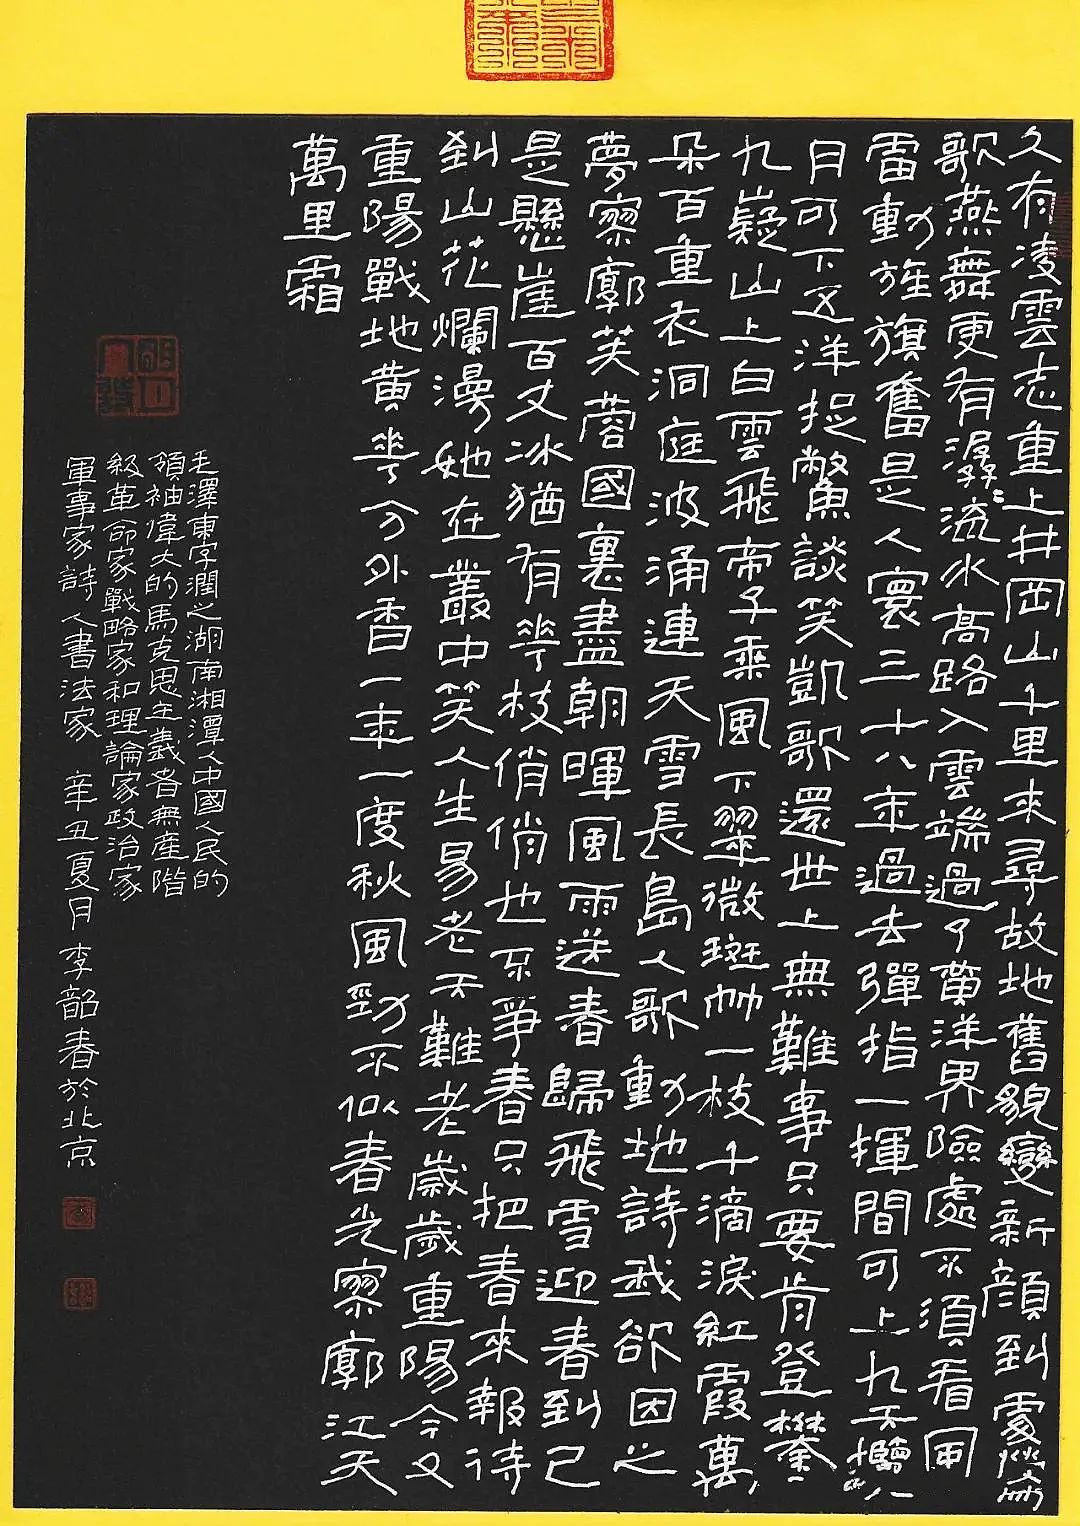 久有凌雲志重上井岡山千里來尋故地舊貌變新顔到處鶯
歌燕舞更有潺〻流水高路入雲端過了黄洋界險處不須看風
雷動旌旗奮是人寰三十八年過去彈指一揮間可上九天攬
月可下五洋捉鱉談笑凱歌還世上無難事只要肯登攀
九嶷山上白雲飛帝子乘風下翠微斑竹一枝千滴淚紅霞萬
朵百重衣洞庭波涌連天雪長島人歌動地詩我欲因之
夢寥廓芙蓉國裏盡朝暉風雨送春歸飛雪迎春到已
是懸崖百丈冰猶有花枝俏俏也不爭春只把春來報待
到山花爛漫她在叢中笑人生易老天難老歲歲重陽今又
重陽戰地黄花分外香一年一度秋風勁不似春光寥廓江天
萬里霜
毛澤東字潤之湖南湘潭人中國人民的
領袖偉大的馬克思主義者無産階
級革命家戰略家和理論家政治家
軍事家詩人書法家 辛丑夏月李韶春於北京